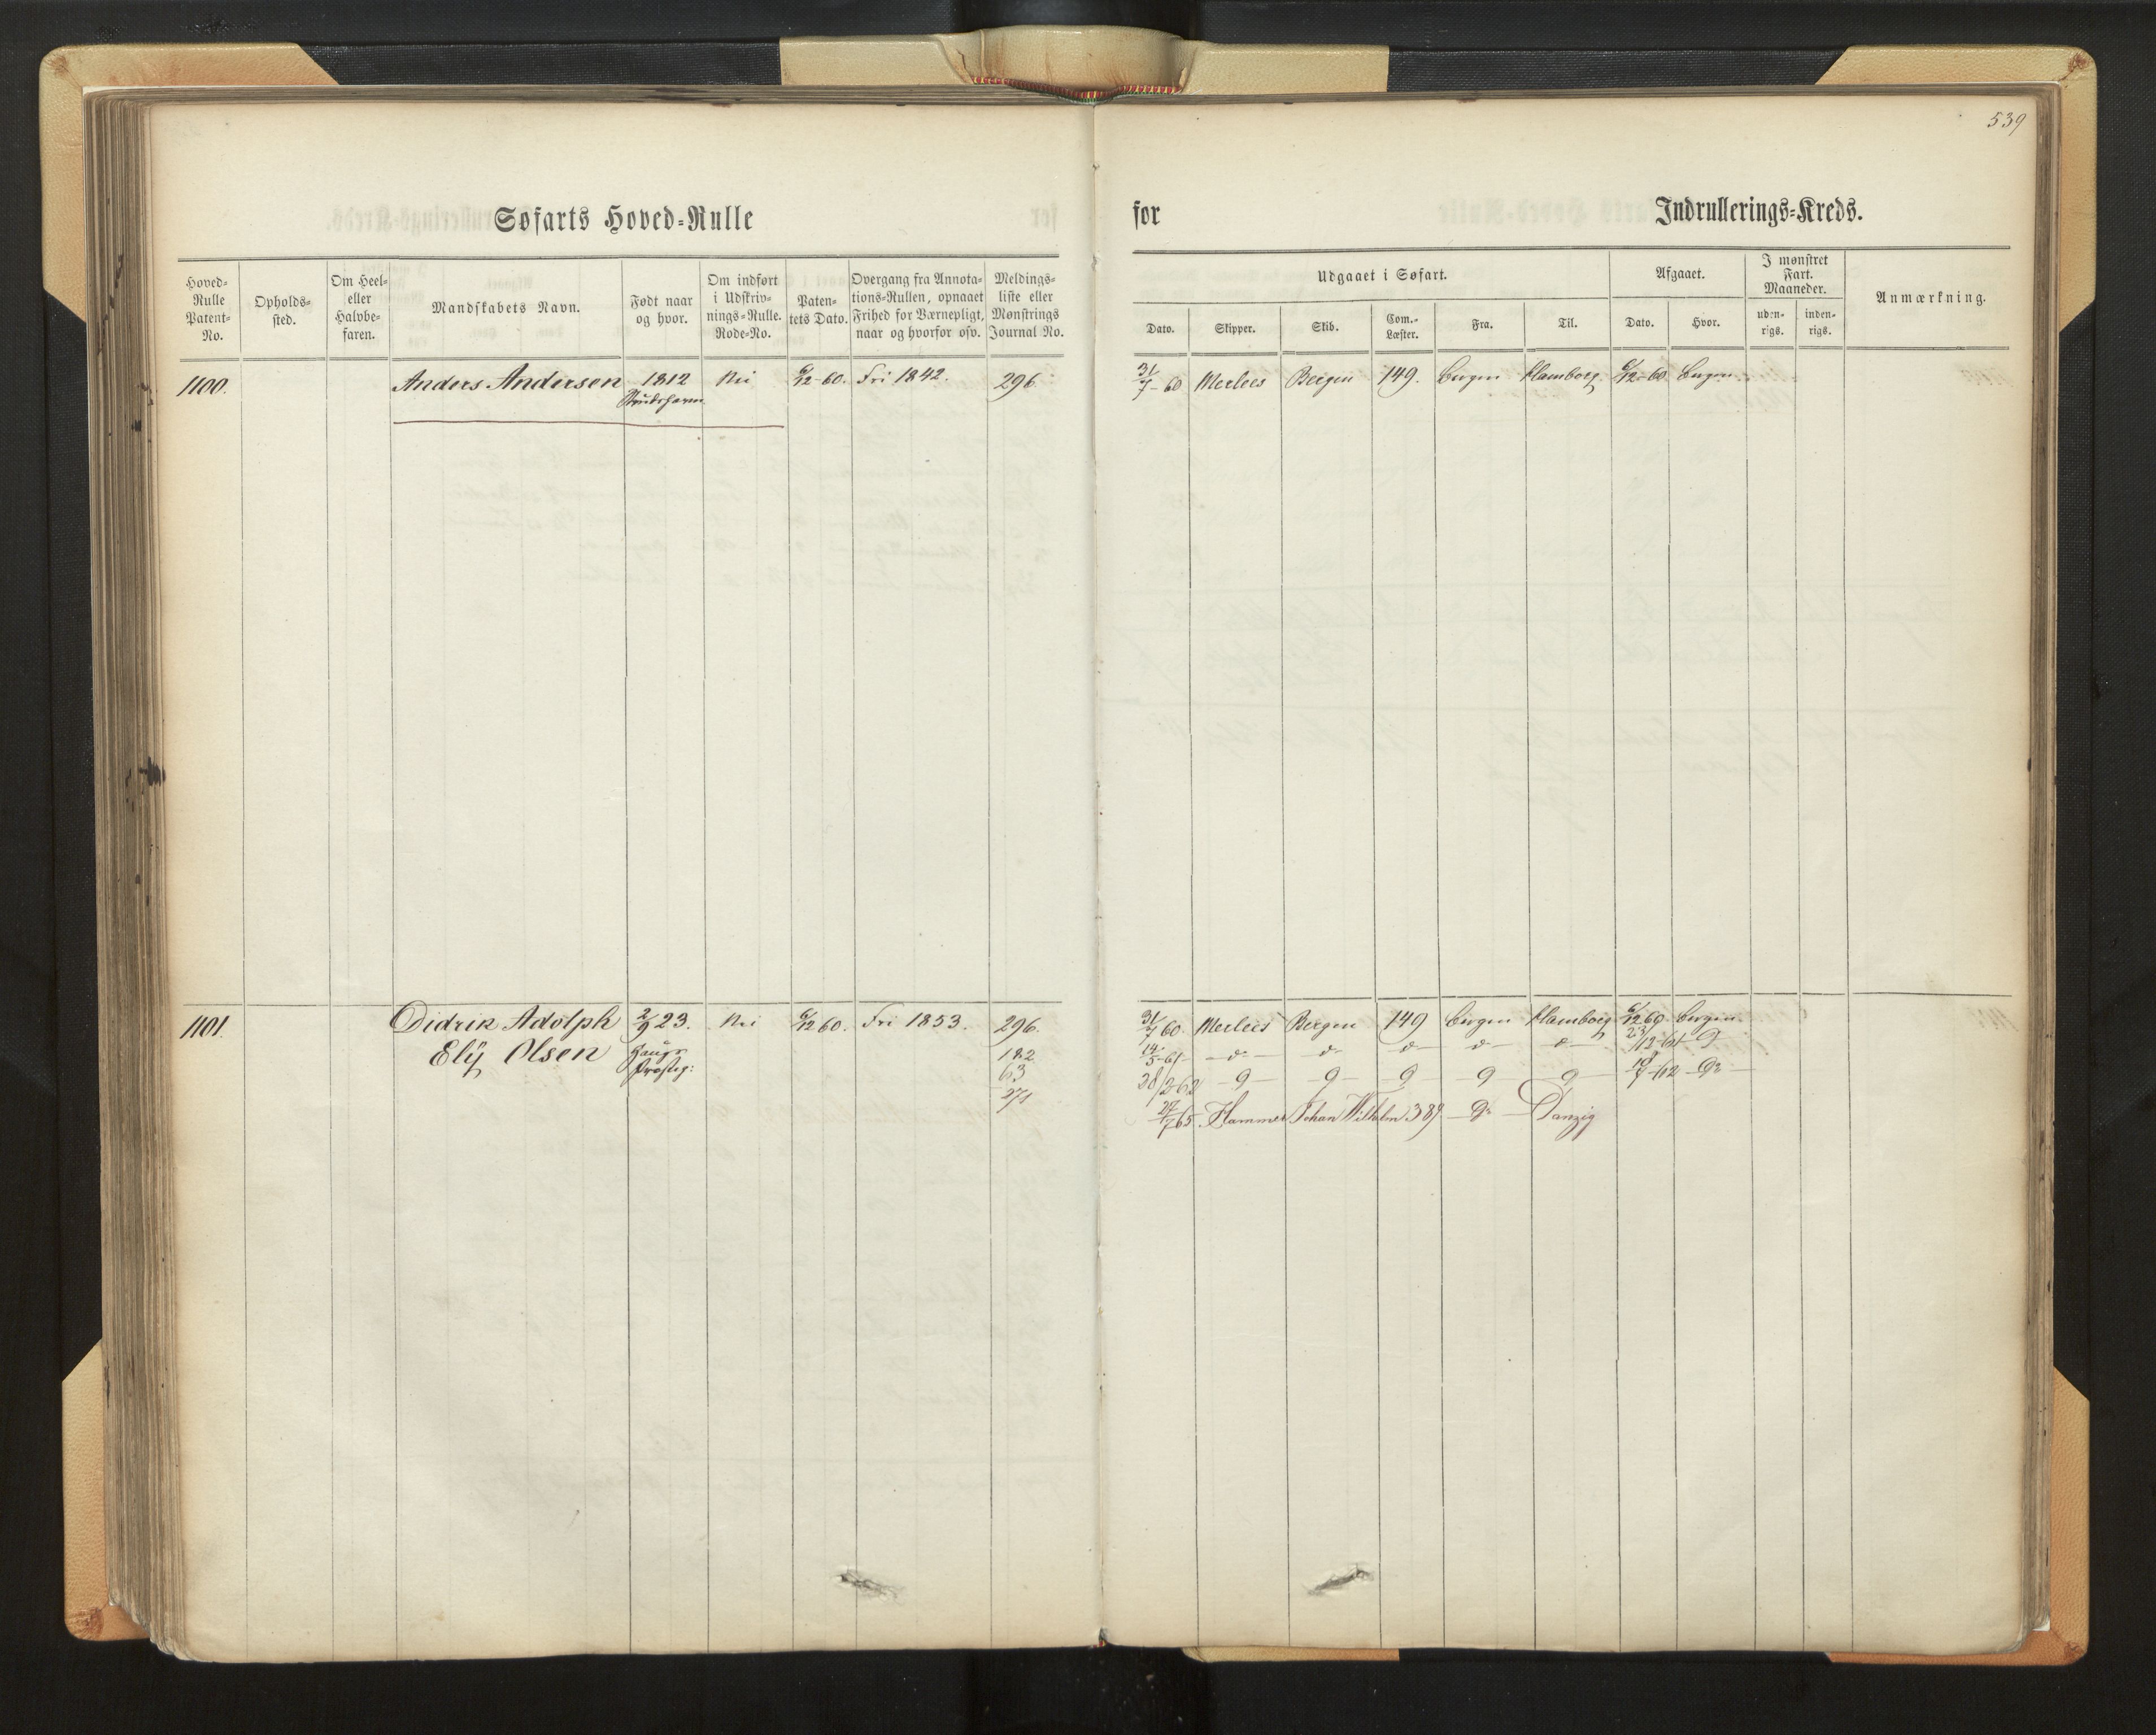 539
Søfarts Hoved-Rulle
for Indrullerings-Kreds.
Hoved-Rulle Patent-No.
Opholds-sted.
Om Heel- eller Halvbe-faren.
Mandskabets Navn.
Født naar og hvor.
Om indført i Udskriv-nings-Rulle. Rode-No.
Paten-tets Dato.
Overgang fra Annota-tions-Rullen, opnaaet Frihed for Værnepligt, naar og hvorfor osv.
Meldings-liste eller Mønstrings Journal No.
Udgaaet i Søfart.
Dato. Skipper. Skib. Com.-Læster. Fra. Til.
Afgaaet.
Dato. Hvor.
I mønstret Fart. Maaneder.
uden-rigs. inden-rigs.
Anmærkning.
1100. Anders Andersen 1812 Nei 6/12-60. Fri 1842. 296
31/7-60 Merlees Bergen 149. Bergen Hamborg 6/12-60 Bergen
1101. Didrik Adolph 2/9 23. Nei 6/12 60. Fri 1853. 296.
Elÿ Olsen
182
63
271
31/7 60 Merlees Bergen 149 Bergen Hamborg 6/12 60 Bergen
14/5-61 - d - d - d - d - d - 23/12-61 D
28/2 62 - D - D - D - D - D - 10/9-62 - Do
27/7 65 Hammer Johan Wilhelm 389 - Do - Danzig